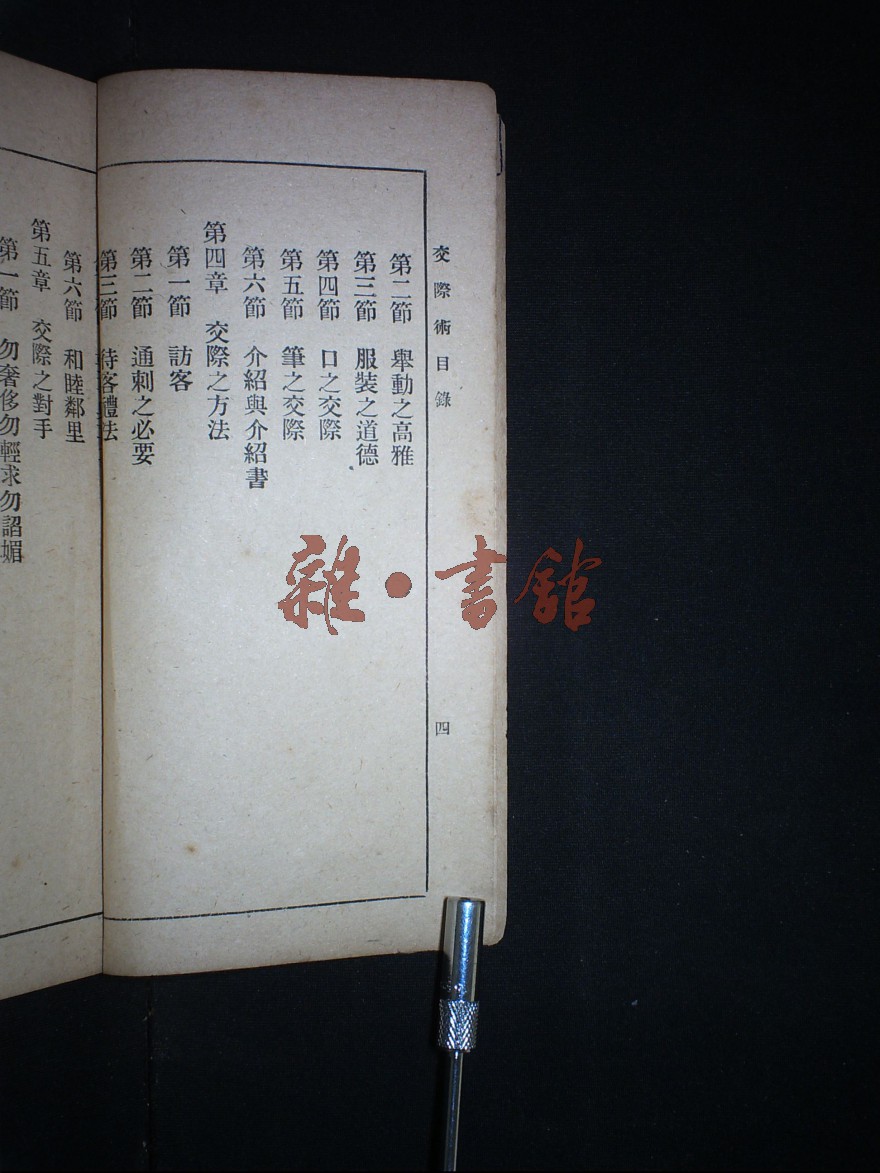 交際術目錄
四
第二節　舉動之高雅
第三節　服裝之道德
第四節　口之交際
第五節　筆之交際
第六節　介紹與介紹書
第四章　交際之方法
第一節　訪客
第二節　通刺之必要
第三節　待客禮法
第六節　和睦鄰里
第五章　交際之對手
第一節　勿奢侈勿輕求勿諂媚
雜·書館